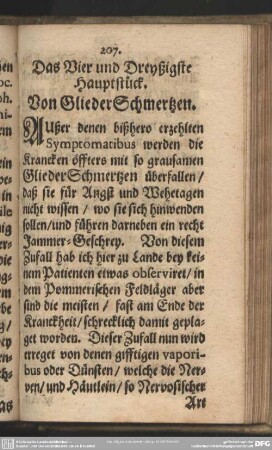 207.
Das Vier und Dreyßigste
Hauptstück.
Von GliederSchmertzen.
AUßer denen bißhero erzehlten
Symptomatibus werden die
Krancken öffters mit so grausamen
GliederSchmertzen überfallen/
daß sie für Angst und Wehetagen
nicht wissen/ wo sie sich hinwenden
sollen/und führen darneben ein recht
Jammer-Geschrey. Von diesem
Zufall hab ich hier zu Lande bey kei-
nem Patienten etwas observiret/ in
dem Pommerischen Feldläger aber
sind die meisten/ fast am Ende der
Kranckheit/ schrecklich damit gepla-
get worden. Dieser Zufall nun wird
erreget von denen gifftigen vapori-
bus oder Dünsten/ welche die Ner-
ven/ und Häutlein/ so Nervosischer
Art